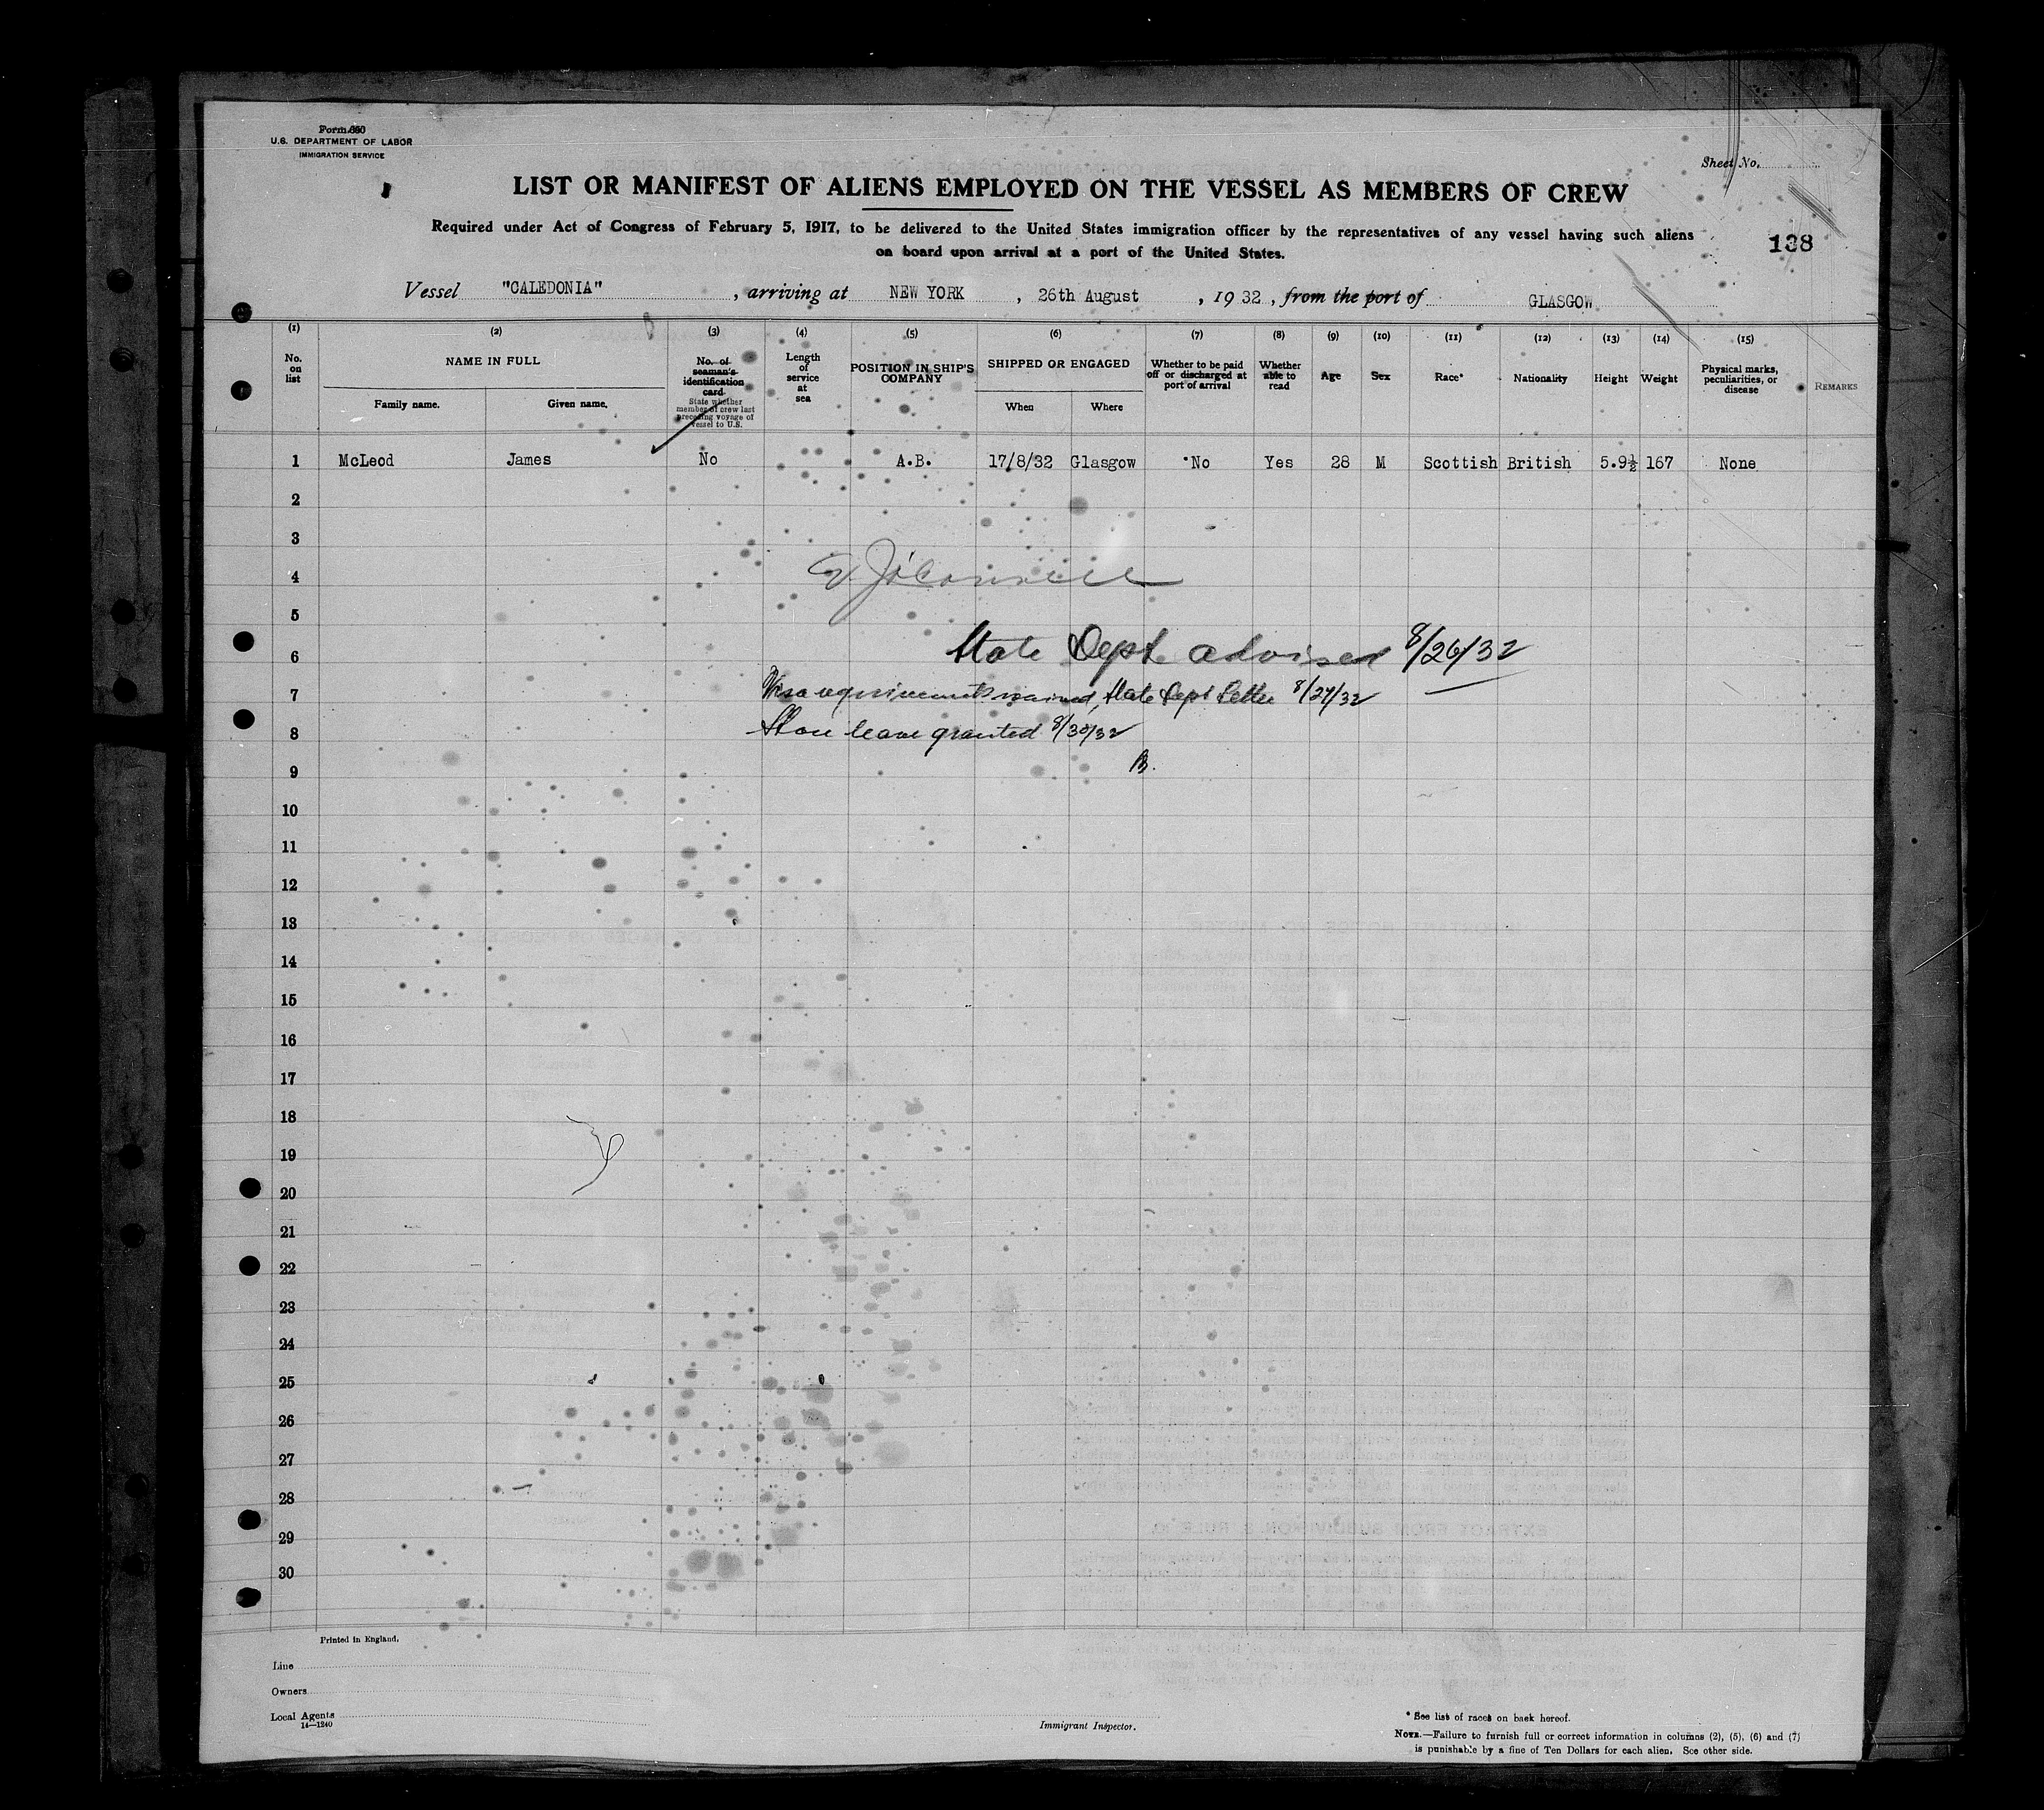 Form 680
U.S. DEPARTMENT OF LABOR
IMMIGRATION SERVICE
Sheet No.
LIST OR MANIFEST OF ALIENS EMPLOYED ON THE VESSEL AS MEMBERS OF CREW
Required under Act of Congress of February 5, 1917, to be delivered to the United States immigration officer by the representatives of any vessel having such aliens
on board upon arrival at a port of the United States.
138
Vessel "CALEDONIA", arriving at NEW YORK, 26th August, 1932, from the port of GLASGOW
(1) (2) (3) (4) (5) (6) (7) (8) (9) (10) (11) (12) (13) (14) (15)
No. on list
NAME IN FULL
Family name. Given name.
No. of seaman's identification card.
State whether member of crew last preceding voyage of vessel to U.S.
Length of service at sea
POSITION IN SHIP'S COMPANY
SHIPPED OR ENGAGED
When Where
Whether to be paid off or discharged at port of arrival
Whether able to read
Age
Sex
Race*
Nationality
Height
Weight
Physical marks, peculiarities, or disease
REMARKS
1 McLeod James No A.B. 17/8/32 Glasgow No Yes 28 M Scottish British 5.9½ 167 None
2
3
4
5
6 State Dept. advised 8/26/32
7 Visa requirements waived, State Dept Letter 8/27/32
8 Shore leave granted 8/30/32
9 B.
10
11
12
13
14
15
16
17
18
19
20
21
22
23
24
25
26
27
28
29
30
Printed in England.
Line
Owners
Local Agents
14—1240
Immigrant Inspector.
* See list of races on back hereof.
NOTE.—Failure to furnish full or correct information in columns (2), (5), (6) and (7)
is punishable by a fine of Ten Dollars for each alien. See other side.